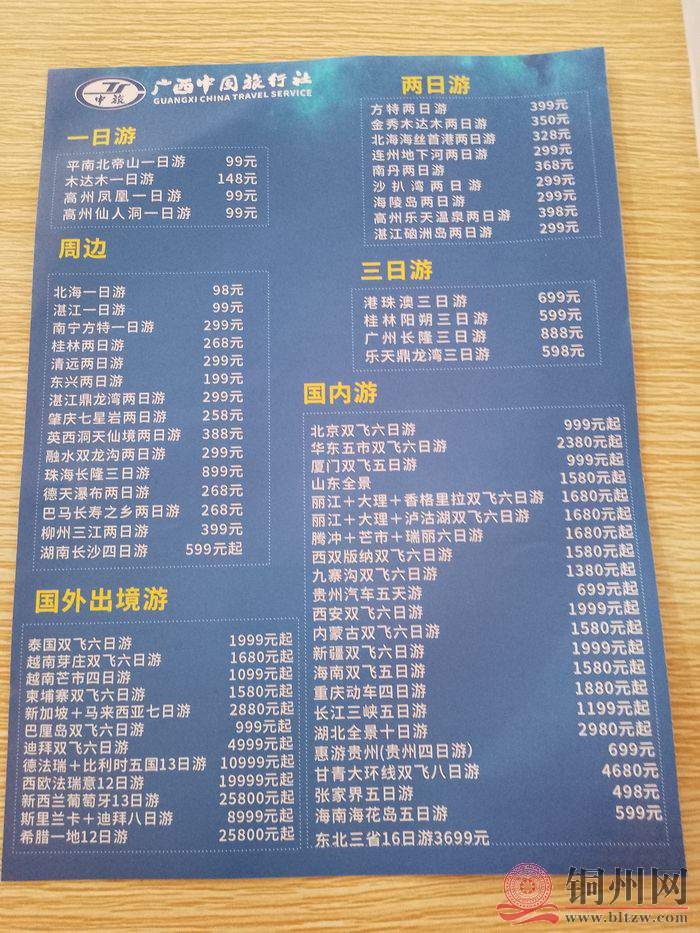 中旅
广西中国旅行社
GUANGXI CHINA TRAVEL SERVICE
一日游
平南北帝山一日游 99元
木达木一日游 148元
高州凤凰一日游 99元
高州仙人洞一日游 99元
周边
北海一日游 98元
湛江一日游 99元
南宁方特一日游 299元
桂林两日游 268元
清远两日游 299元
东兴两日游 199元
湛江鼎龙湾两日游 299元
肇庆七星岩两日游 258元
英西洞天仙境两日游 388元
融水双龙沟两日游 299元
珠海长隆三日游 899元
德天瀑布两日游 268元
巴马长寿之乡两日游 268元
柳州三江两日游 399元
湖南长沙四日游 599元起
国外出境游
泰国双飞六日游 1999元起
越南芽庄双飞六日游 1680元起
越南芒市四日游 1099元起
柬埔寨双飞六日游 1580元起
新加坡＋马来西亚七日游 2880元起
巴厘岛双飞六日游 999元起
迪拜双飞六日游 4999元起
德法瑞＋比利时五国13日游 10999元起
西欧法瑞意12日游 19999元起
新西兰葡萄牙13日游 25800元起
斯里兰卡＋迪拜八日游 8999元起
希腊一地12日游 25800元起
两日游
方特两日游 399元
金秀木达木两日游 350元
北海海丝首港两日游 328元
连州地下河两日游 299元
南丹两日游 368元
沙扒湾两日游 299元
海陵岛两日游 299元
高州乐天温泉两日游 398元
湛江硇洲岛两日游 299元
三日游
港珠澳三日游 699元
桂林阳朔三日游 599元
广州长隆三日游 888元
乐天鼎龙湾三日游 598元
国内游
北京双飞六日游 999元起
华东五市双飞六日游 2380元起
厦门双飞五日游 999元起
山东全景 1580元起
丽江＋大理＋香格里拉双飞六日游 1680元起
丽江＋大理＋泸沽湖双飞六日游 1680元起
腾冲＋芒市＋瑞丽六日游 1680元起
西双版纳双飞六日游 1580元起
九寨沟双飞六日游 1380元起
贵州汽车五天游 699元起
西安双飞六日游 1999元起
内蒙古双飞六日游 1580元起
新疆双飞六日游 1999元起
海南双飞五日游 1580元起
重庆动车四日游 1880元起
长江三峡五日游 1199元起
湖北全景十日游 2980元起
惠游贵州(贵州四日游) 699元
甘青大环线双飞八日游 4680元
张家界五日游 498元
海南海花岛五日游 599元
东北三省16日游3699元
铜州网
www.bltzw.com